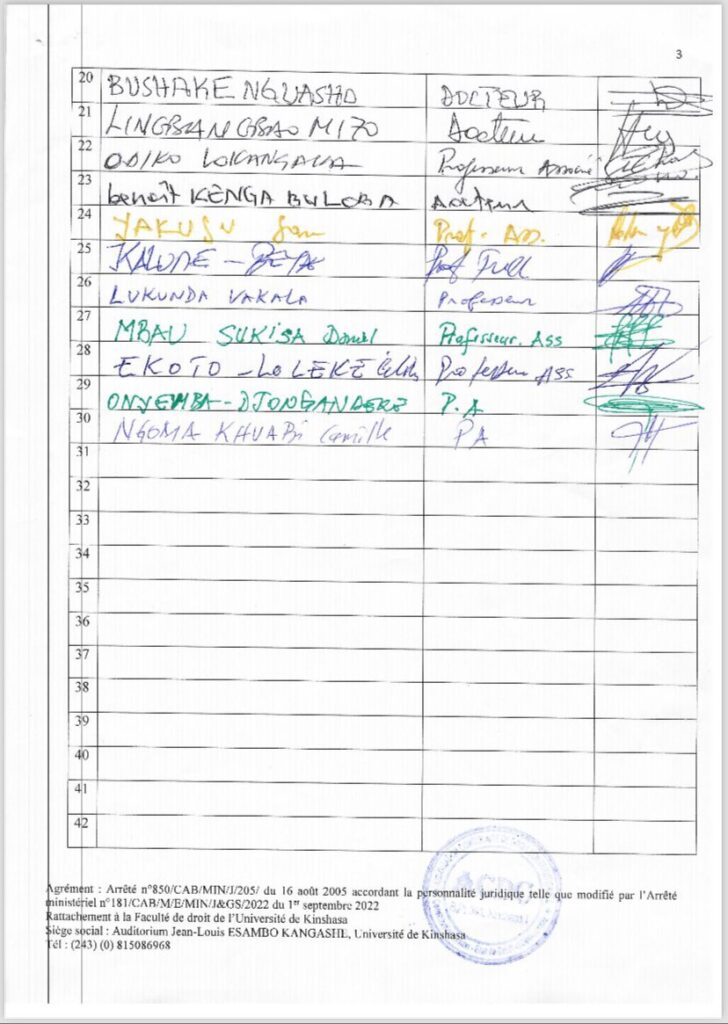 3
20 BUSHAKE NGUASHO DOCTEUR
21 LINGBANGBAO MIZO Docteur
22 ODIKO LOKANGAKA Professeur Associé
23 benoît KENGA BULOBA Docteur
24 YAKUSU Prof. Ass.
25 KALUME - BEYA Prof Full
26 LUKUNDA VAKALA Professeur
27 MBAU SUKISA Daniel Professeur. Ass
28 EKOTO - LOLEKE Professeur Ass
29 ONYEMBA - DJONGANDEKE P.A
30 NGOMA KHUABI Camille PA
31
32
33
34
35
36
37
38
39
40
41
42
Agrément : Arrêté n°850/CAB/MIN/J/205/ du 16 août 2005 accordant la personnalité juridique telle que modifié par l'Arrêté
ministériel n°181/CAB/M/E/MIN/J&GS/2022 du 1er septembre 2022
Rattachement à la Faculté de droit de l'Université de Kinshasa
Siège social : Auditorium Jean-Louis ESAMBO KANGASHE, Université de Kinshasa
Tél : (243) (0) 815086968